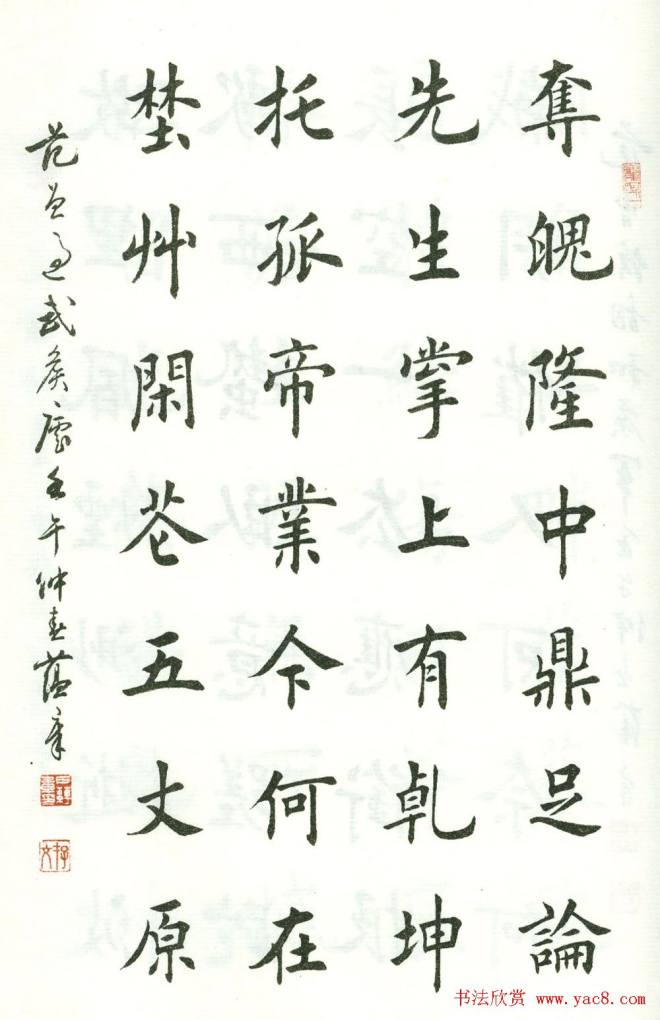 奪魄隆中鼎足論
先生掌上有乹坤
托孤帝業今何在
埜艸閑芲五丈原
范曾過武侯廬壬午仲春薀章
书法欣赏 www.yac8.com